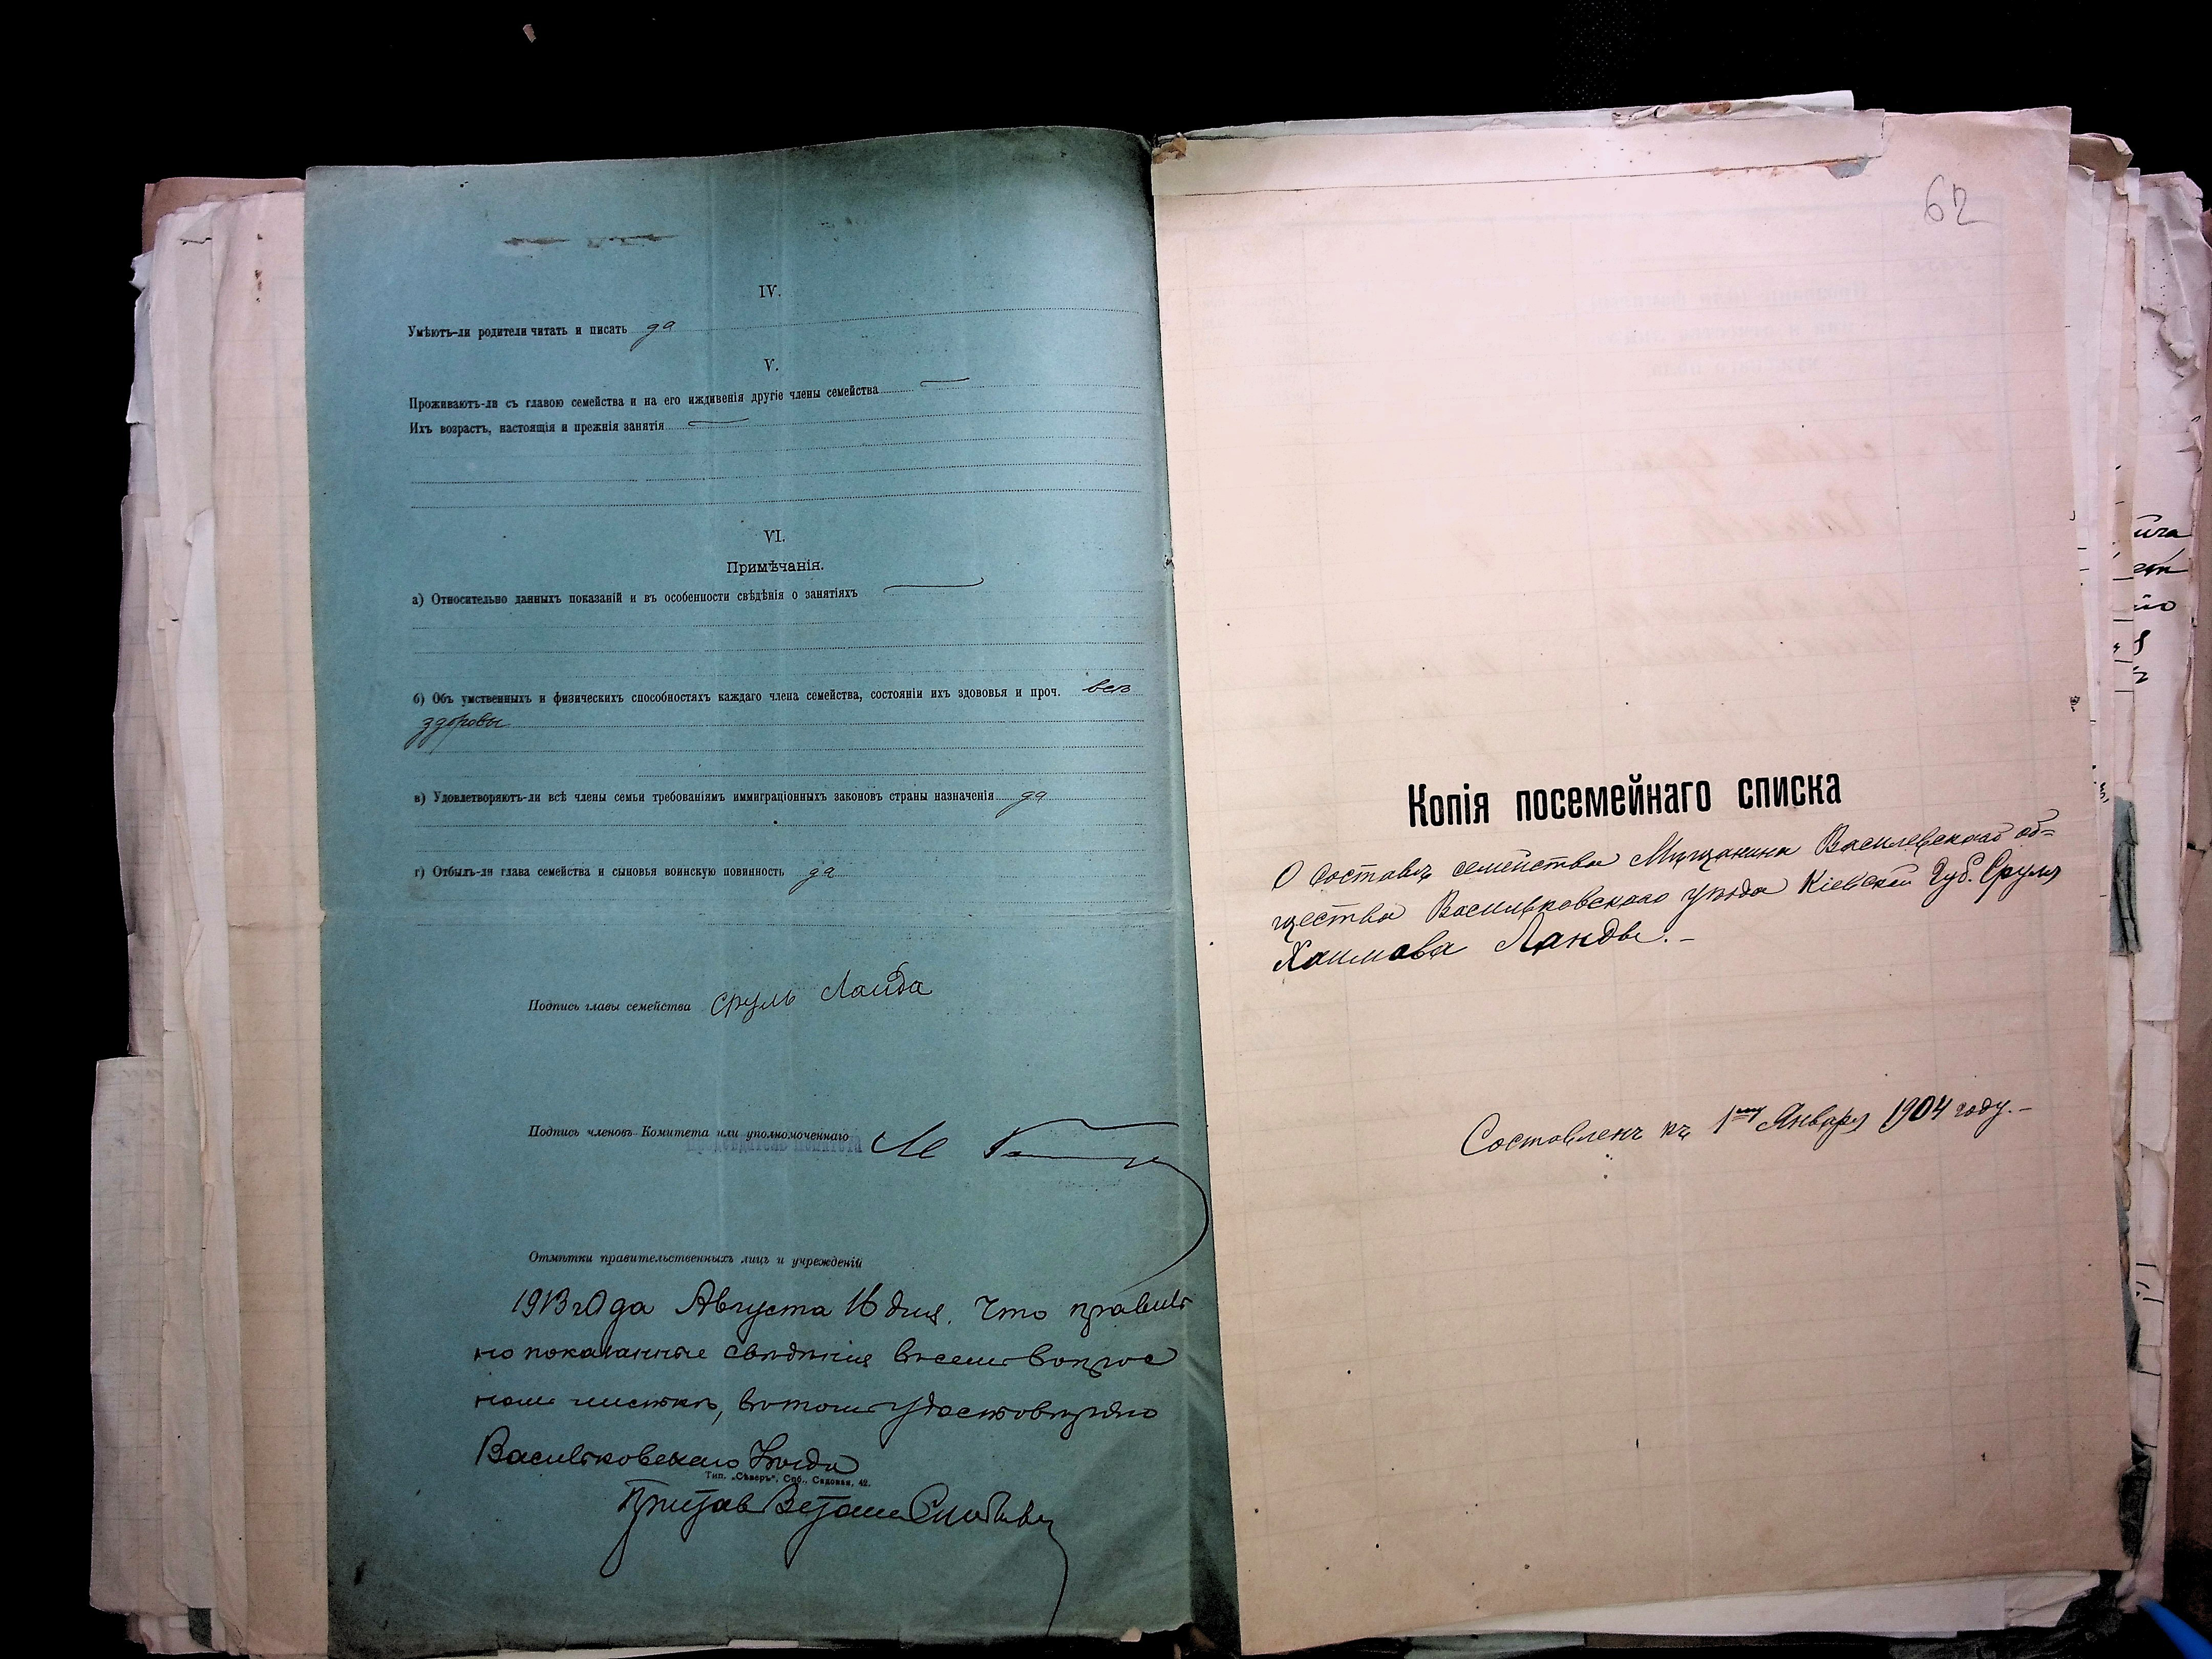 IV.
Умѣютъ-ли родители читать и писать да
V.
Проживаютъ-ли съ главою семейства и на его иждивенія другіе члены семейства
Ихъ возрастъ, настоящія и прежнія занятія
VI.
Примѣчанія.
а) Относительно данныхъ показаній и въ особенности свѣдѣнія о занятіяхъ
б) Объ умственныхъ и физическихъ способностяхъ каждаго члена семейства, состояніи ихъ здововья и проч. всѣ
здоровы
в) Удовлетворяютъ-ли всѣ члены семьи требованіямъ иммиграціонныхъ законовъ страны назначенія да
г) Отбылъ-ли глава семейства и сыновья воинскую повинность да
Подпись главы семейства Сруль Ланда
Подпись членовъ Комитета или уполномоченнаго
Предсѣдатель Комитета
Отмѣтки правительственныхъ лицъ и учрежденій
1913 года Августа 16 дня. Что правиль
но показанные свѣдѣнія въ семъ вопрос
номъ листкѣ, въ томъ удостовѣряю
Васильковскаго Уѣзда
Тип. „Сѣверъ“, Спб., Садовая, 42.
Пристав
62
Копія посемейнаго списка
О составѣ семейства Мѣщанина Василевскаго об=
щества Васильковскаго уѣзда Кіевской Губ. Сруля
Хаимова Ланды.-
Составленъ къ 1му Января 1904 году.-